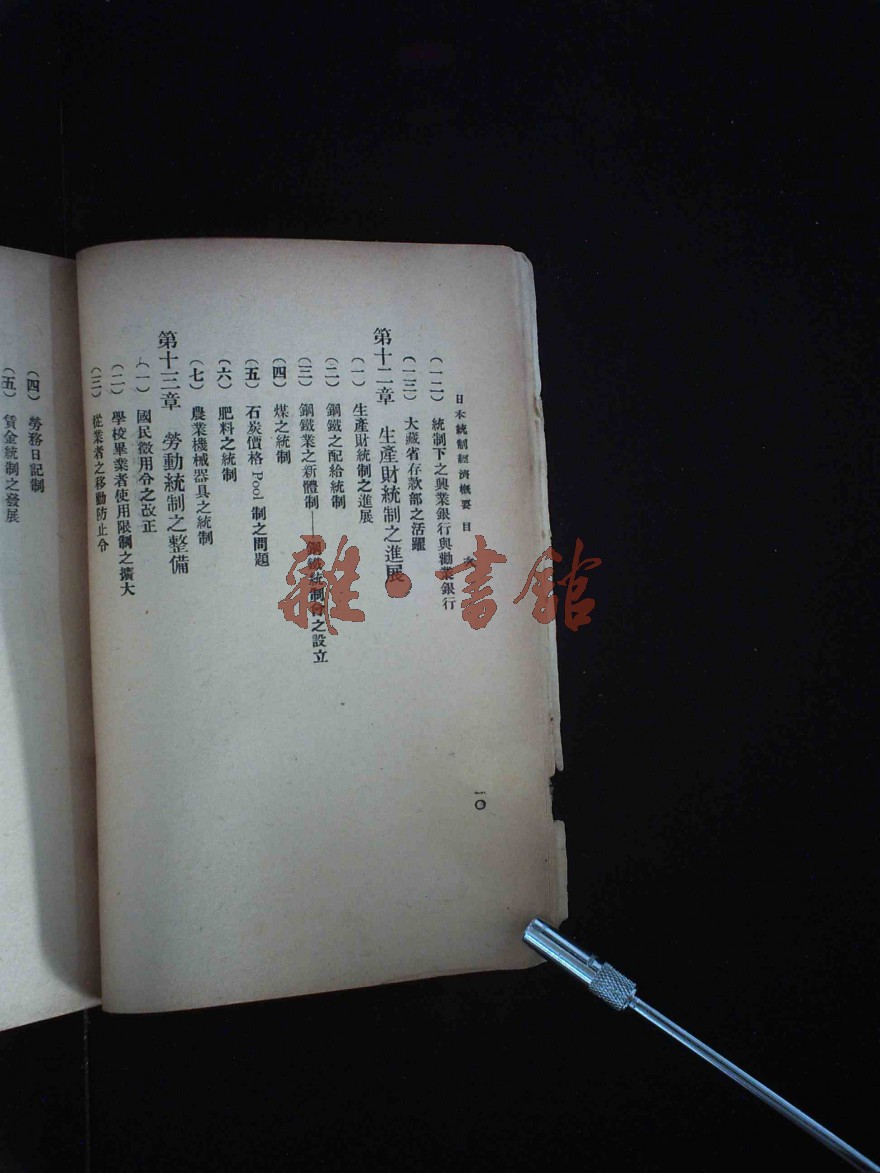 日本統制經濟概要 目 次
(一二) 統制下之興業銀行與勸業銀行
(一三) 大藏省存款部之活躍
第十二章 生產財統制之進展
(一) 生產財統制之進展
(二) 鋼鐵之配給統制
(三) 鋼鐵業之新體制——鋼鐵統制會之設立
(四) 煤之統制
(五) 石炭價格 Pool 制之問題
(六) 肥料之統制
(七) 農業機械器具之統制
第十三章 勞動統制之整備
(一) 國民徵用令之改正
(二) 學校畢業者使用限制之擴大
(三) 從業者之移動防止令
一〇
(四) 勞務日記制
(五) 賃金統制之發展
雜·書館